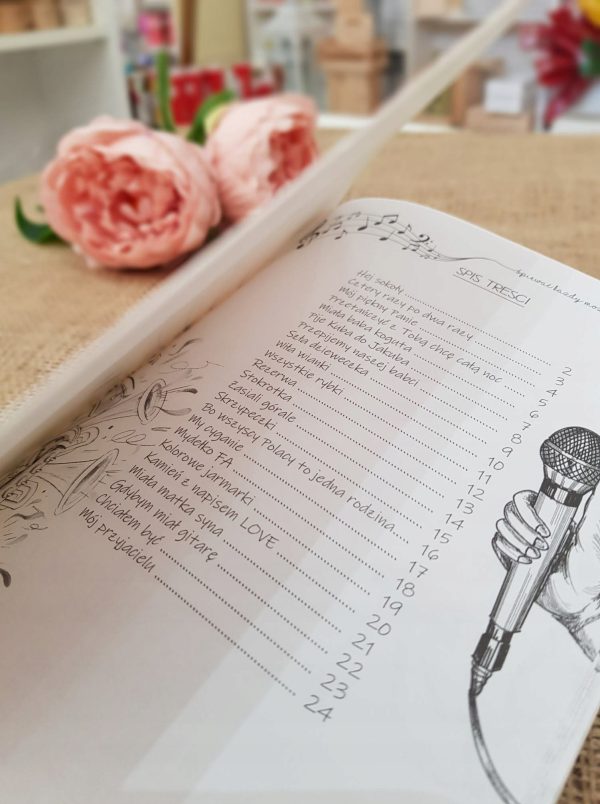 Śpiewać każdy moż
SPIS TREŚCI
Hej sokoły 2
Cztery razy po dwa razy 3
Mój piękny Panie 4
Przetańczyć z Tobą chcę całą noc 5
Miała baba koguta 6
Pije Kuba do Jakuba 7
Przepijemy naszej babci 8
Szła dzieweczka 9
Wiła wianki 10
Wszystkie rybki 11
Rezerwa 12
Stokrotka 13
Zasiali górale 14
Skrzypeczki 15
Bo wszyscy Polacy to jedna rodzina 16
My cyganie 17
Mydełko FA 18
Kolorowe jarmarki 19
Kamień z napisem LOVE 20
Miała matka syna 21
Gdybym miał gitarę 22
Chciałem być 23
Mój przyjacielu 24